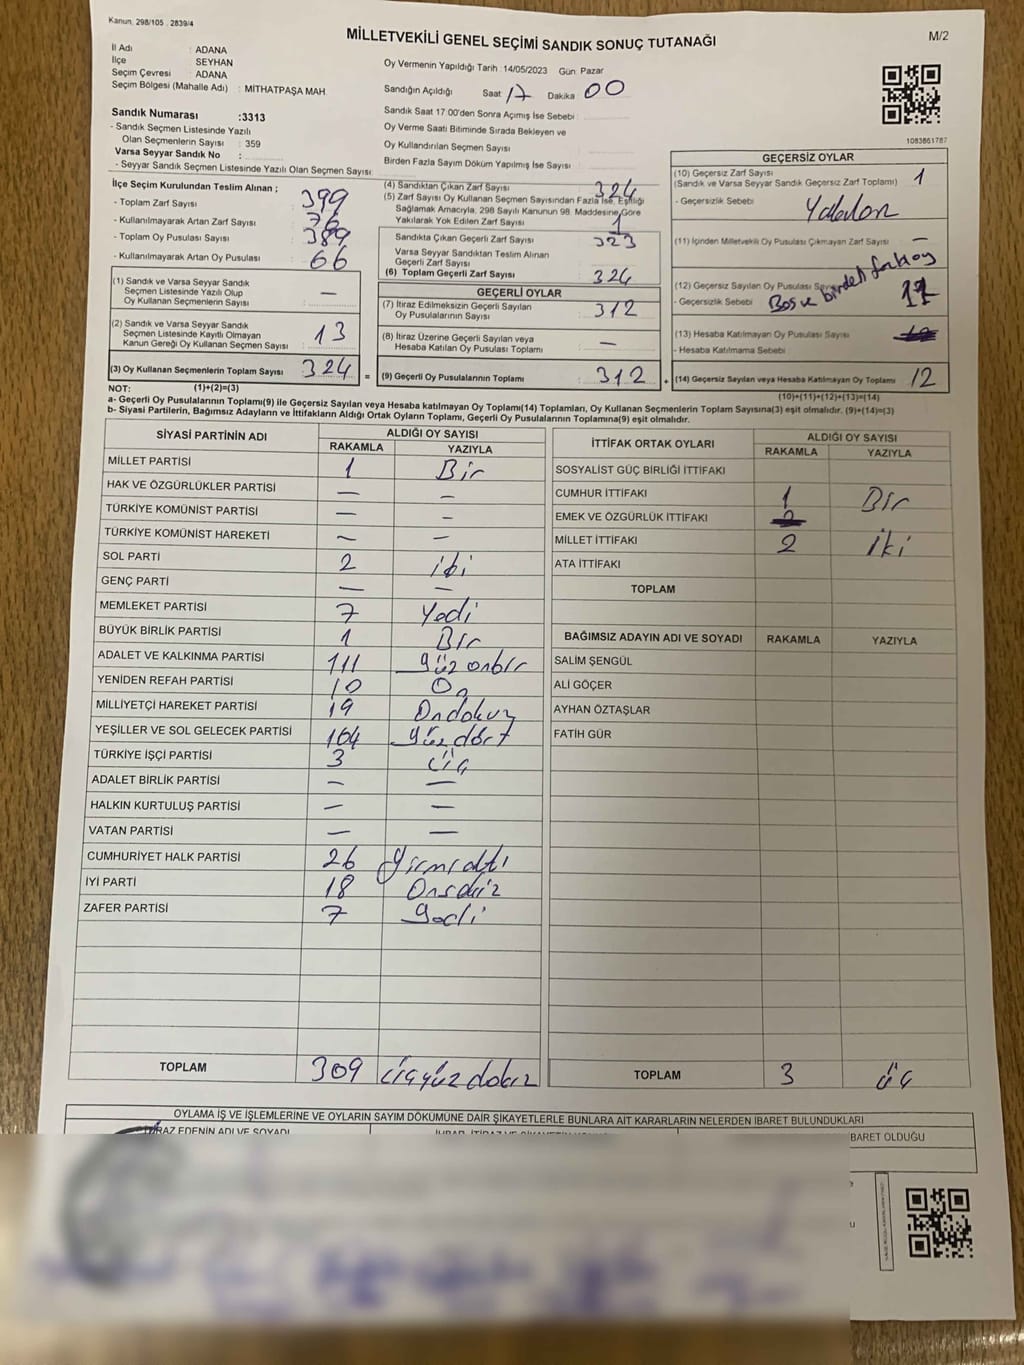 Kanun, 298/105 , 2839/4
MİLLETVEKİLİ GENEL SEÇİMİ SANDIK SONUÇ TUTANAĞI
M/2
İl Adı : ADANA
İlçe SEYHAN
Seçim Çevresi : ADANA
Seçim Bölgesi (Mahalle Adı) : MİTHATPAŞA MAH.
Oy Vermenin Yapıldığı Tarih :14/05/2023 Gün: Pazar
Sandığın Açıldığı Saat 17 Dakika 00
Sandık Saat 17.00'den Sonra Açımış İse Sebebi :
Oy Verme Saati Bitiminde Sırada Bekleyen ve
Oy Kullandırılan Seçmen Sayısı
Birden Fazla Sayım Döküm Yapılmış İse Sayısı :
1083861787
Sandık Numarası :3313
- Sandık Seçmen Listesinde Yazılı
Olan Seçmenlerin Sayısı : 359
Varsa Seyyar Sandık No :
- Seyyar Sandık Seçmen Listesinde Yazılı Olan Seçmen Sayısı:
İlçe Seçim Kurulundan Teslim Alınan ;
- Toplam Zarf Sayısı : 399
- Kullanılmayarak Artan Zarf Sayısı : 76
- Toplam Oy Pusulası Sayısı : 389
- Kullanılmayarak Artan Oy Pusulası : 66
(1) Sandık ve Varsa Seyyar Sandık
Seçmen Listesinde Yazılı Olup
Oy Kullanan Seçmenlerin Sayısı : —
(2) Sandık ve Varsa Seyyar Sandık
Seçmen Listesinde Kayıtlı Olmayan
Kanun Gereği Oy Kullanan Seçmen Sayısı : 13
(3) Oy Kullanan Seçmenlerin Toplam Sayısı : 324
(4) Sandıktan Çıkan Zarf Sayısı : 324
(5) Zarf Sayısı Oy Kullanan Seçmen Sayısından Fazla İse, Eşitliği
Sağlamak Amacıyla, 298 Sayılı Kanunun 98. Maddesine Göre
Yakılarak Yok Edilen Zarf Sayısı : 1
Sandıkta Çıkan Geçerli Zarf Sayısı : 323
Varsa Seyyar Sandıktan Teslim Alınan
Geçerli Zarf Sayısı
(6) Toplam Geçerli Zarf Sayısı : 324
GEÇERLİ OYLAR
(7) İtiraz Edilmeksizin Geçerli Sayılan
Oy Pusulalarının Sayısı : 312
(8) İtiraz Üzerine Geçerli Sayılan veya
Hesaba Katılan Oy Pusulası Toplamı : —
= (9) Geçerli Oy Pusulalarının Toplamı : 312
GEÇERSİZ OYLAR
(10) Geçersiz Zarf Sayısı : 1
(Sandık ve Varsa Seyyar Sandık Geçersiz Zarf Toplamı)
- Geçersizlik Sebebi :
(11) İçinden Milletvekili Oy Pusulası Çıkmayan Zarf Sayısı : —
(12) Geçersiz Sayılan Oy Pusulası Sayısı : 11
- Geçersizlik Sebebi : Boş ve birden fazla oy
(13) Hesaba Katılmayan Oy Pusulası Sayısı
- Hesaba Katılmama Sebebi
+ (14) Geçersiz Sayılan veya Hesaba Katılmayan Oy Toplamı : 12
NOT: (1)+(2)=(3)
(10)+(11)+(12)+(13)=(14)
a- Geçerli Oy Pusulalarının Toplamı(9) ile Geçersiz Sayılan veya Hesaba katılmayan Oy Toplamı(14) Toplamları, Oy Kullanan Seçmenlerin Toplam Sayısına(3) eşit olmalıdır. (9)+(14)=(3)
b- Siyasi Partilerin, Bağımsız Adayların ve İttifakların Aldığı Ortak Oyların Toplamı, Geçerli Oy Pusulalarının Toplamına(9) eşit olmalıdır.
SİYASİ PARTİNİN ADI ALDIĞI OY SAYISI
RAKAMLA YAZIYLA
MİLLET PARTİSİ 1 Bir
HAK VE ÖZGÜRLÜKLER PARTİSİ — —
TÜRKİYE KOMÜNİST PARTİSİ — —
TÜRKİYE KOMÜNİST HAREKETİ — —
SOL PARTİ 2 iki
GENÇ PARTİ — —
MEMLEKET PARTİSİ 7 Yedi
BÜYÜK BİRLİK PARTİSİ 1 Bir
ADALET VE KALKINMA PARTİSİ 111 yüz onbir
YENİDEN REFAH PARTİSİ 10 On
MİLLİYETÇİ HAREKET PARTİSİ 19 Ondokuz
YEŞİLLER VE SOL GELECEK PARTİSİ 104 yüz dört
TÜRKİYE İŞÇİ PARTİSİ 3 üç
ADALET BİRLİK PARTİSİ — —
HALKIN KURTULUŞ PARTİSİ — —
VATAN PARTİSİ — —
CUMHURİYET HALK PARTİSİ 26 yirmi altı
İYİ PARTİ 18 Onsekiz
ZAFER PARTİSİ 7 yedi
TOPLAM 309 üçyüz dokuz
İTTİFAK ORTAK OYLARI ALDIĞI OY SAYISI
RAKAMLA YAZIYLA
SOSYALİST GÜÇ BİRLİĞİ İTTİFAKI
CUMHUR İTTİFAKI 1 Bir
EMEK VE ÖZGÜRLÜK İTTİFAKI
MİLLET İTTİFAKI 2 iki
ATA İTTİFAKI
TOPLAM
BAĞIMSIZ ADAYIN ADI VE SOYADI RAKAMLA YAZIYLA
SALİM ŞENGÜL
ALİ GÖÇER
AYHAN ÖZTAŞLAR
FATİH GÜR
TOPLAM 3 üç
OYLAMA İŞ VE İŞLEMLERİNE VE OYLARIN SAYIM DÖKÜMÜNE DAİR ŞİKAYETLERLE BUNLARA AİT KARARLARIN NELERDEN İBARET BULUNDUKLARI
İTİRAZ EDENİN ADI VE SOYADI
BARET OLDUĞU